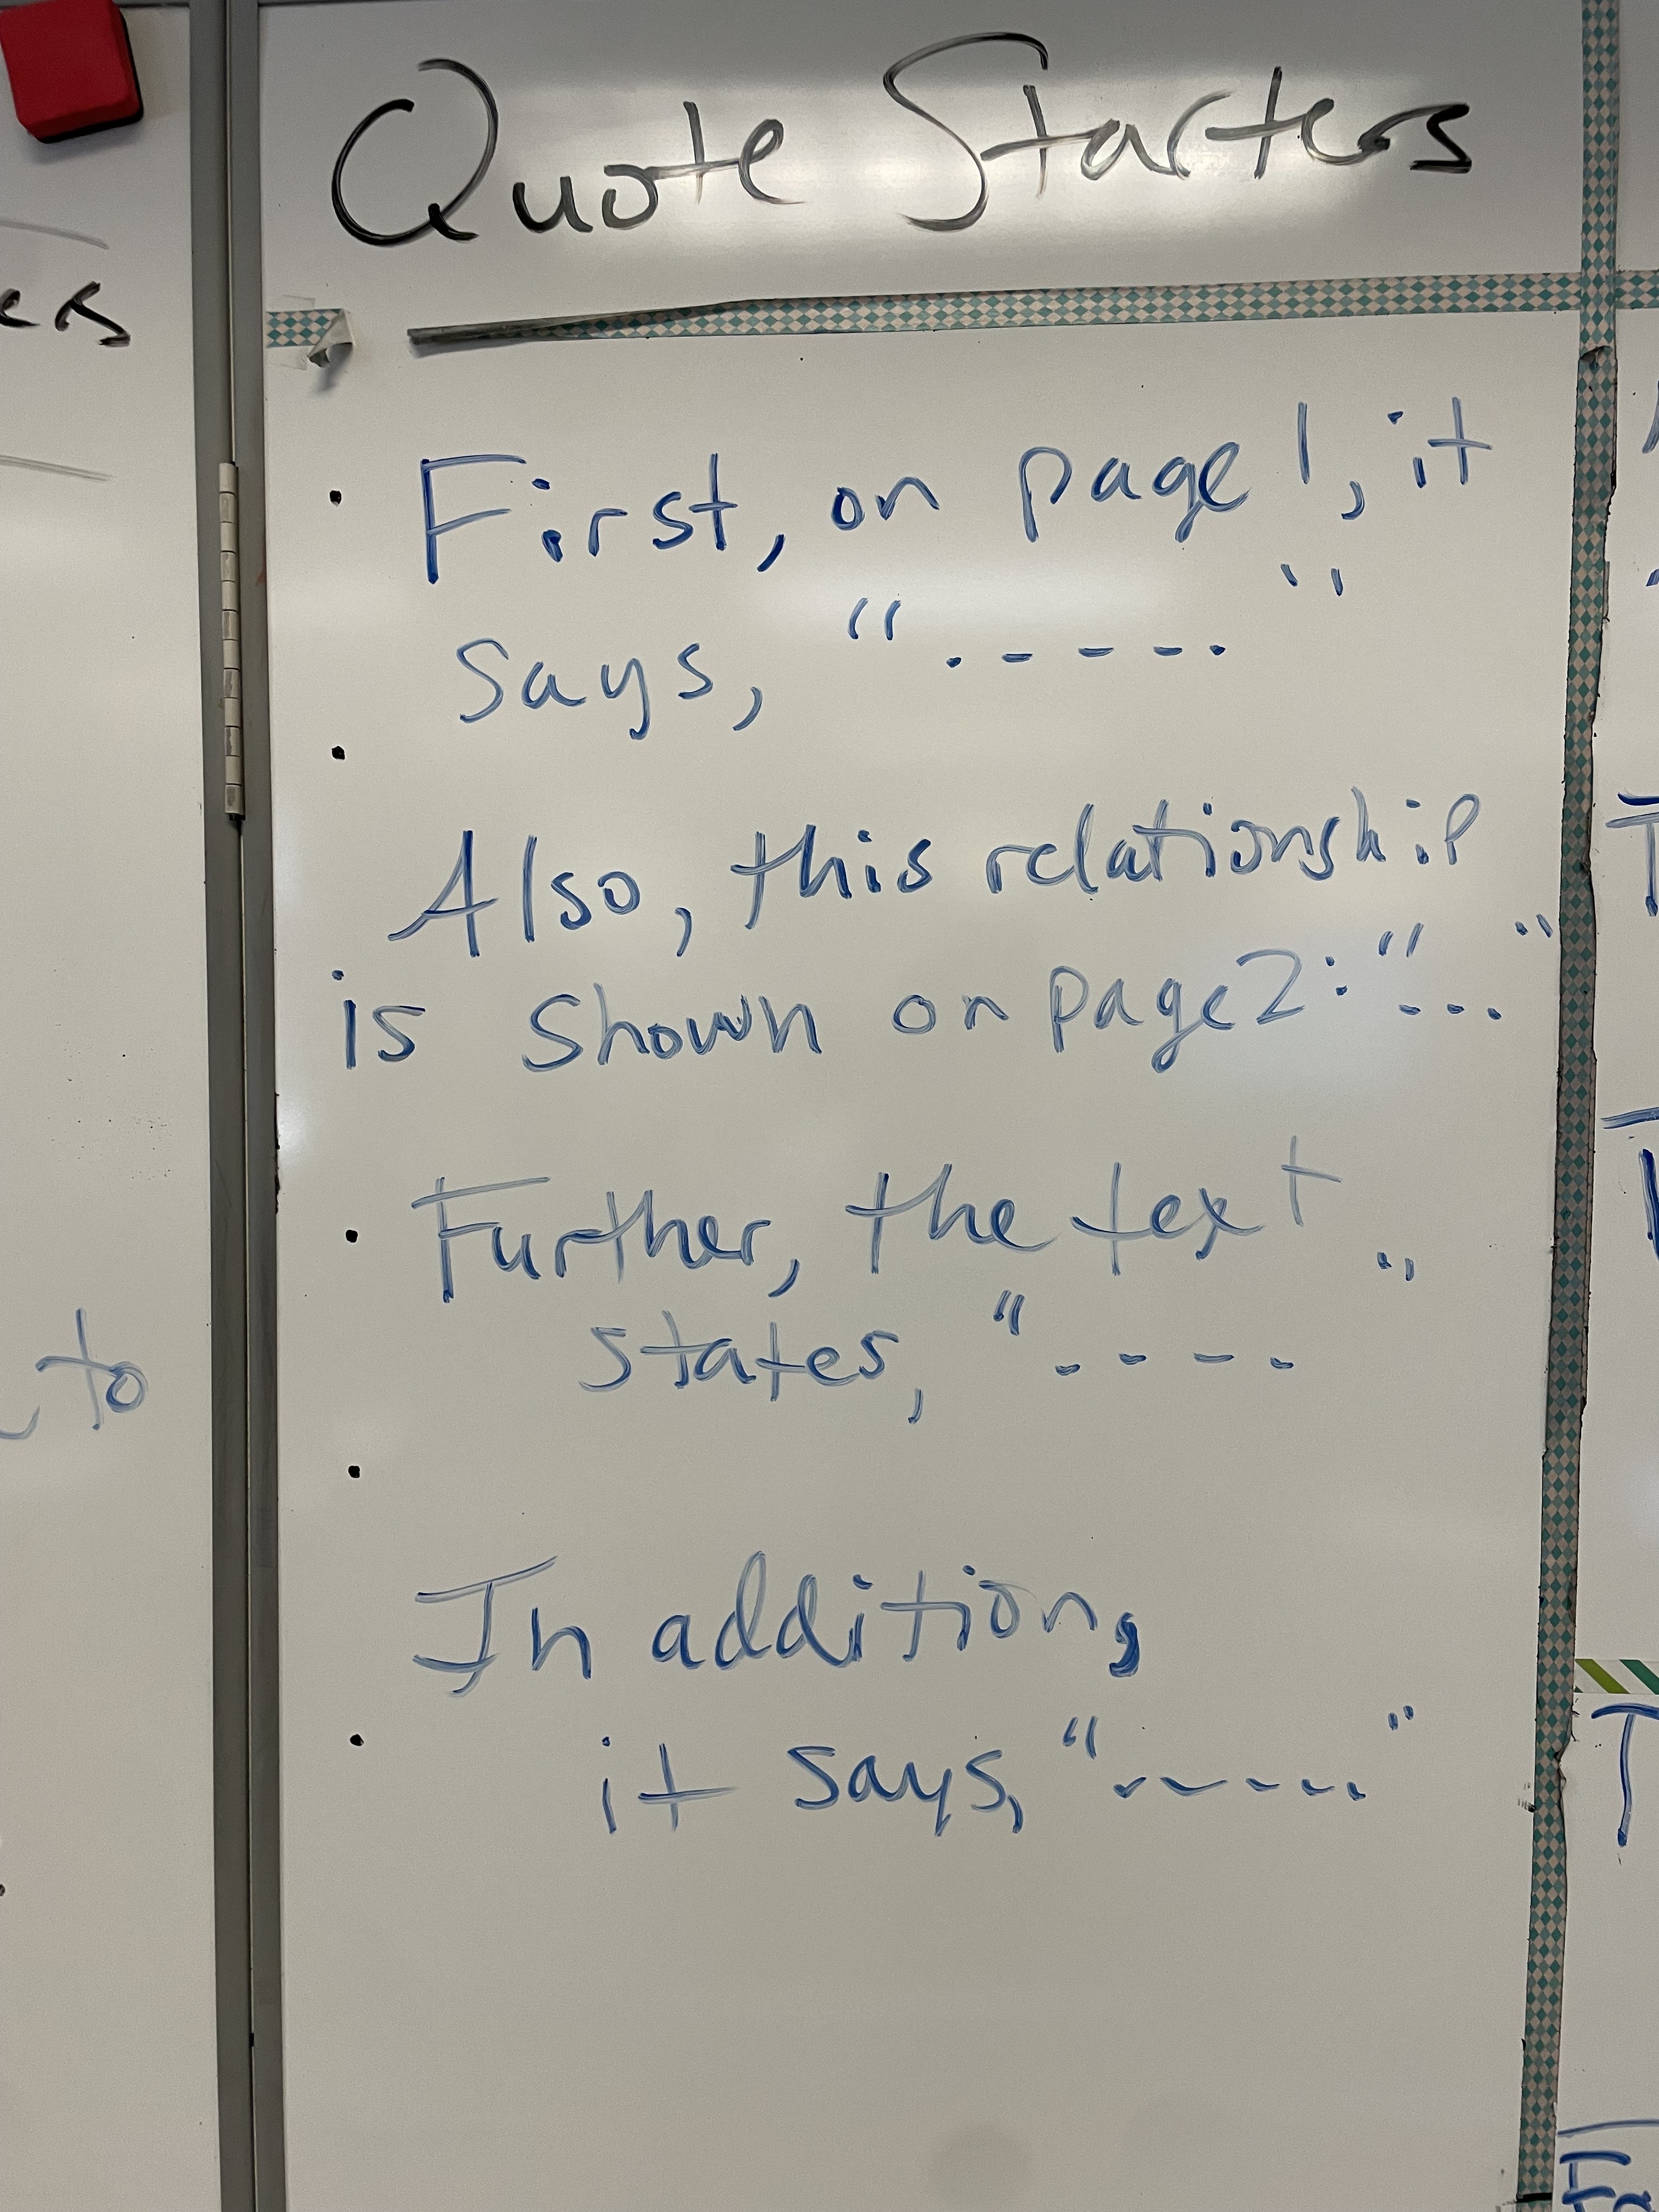 Quote Starters
• First, on page 1, it
says, "-----"
•
Also, this relationship
is shown on page 2: "..."
• Further, the text
states, "----"
•
In addition,
• it says, "-----"
to